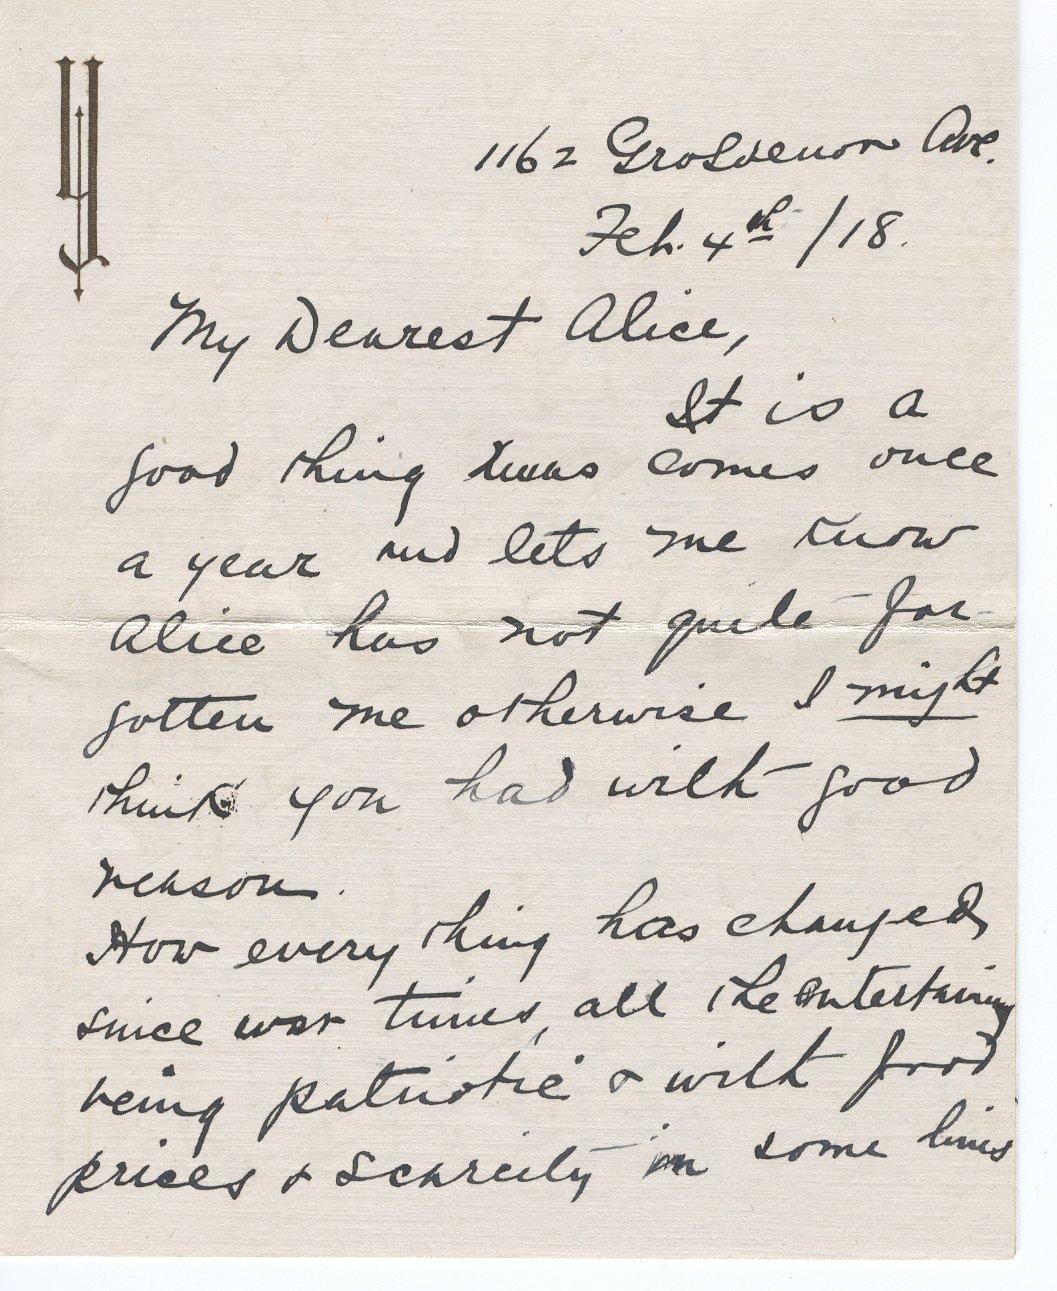 1162 Grosvenor Ave.
Feb. 4th /18.
My Dearest Alice,
It is a
good thing Xmas comes once
a year and lets me know
Alice has not quite for-
gotten me otherwise I might
think you had with good
reason.
How every thing has changed
since war times, all the entertaining
being patriotic & with food
prices & scarcity in some lines